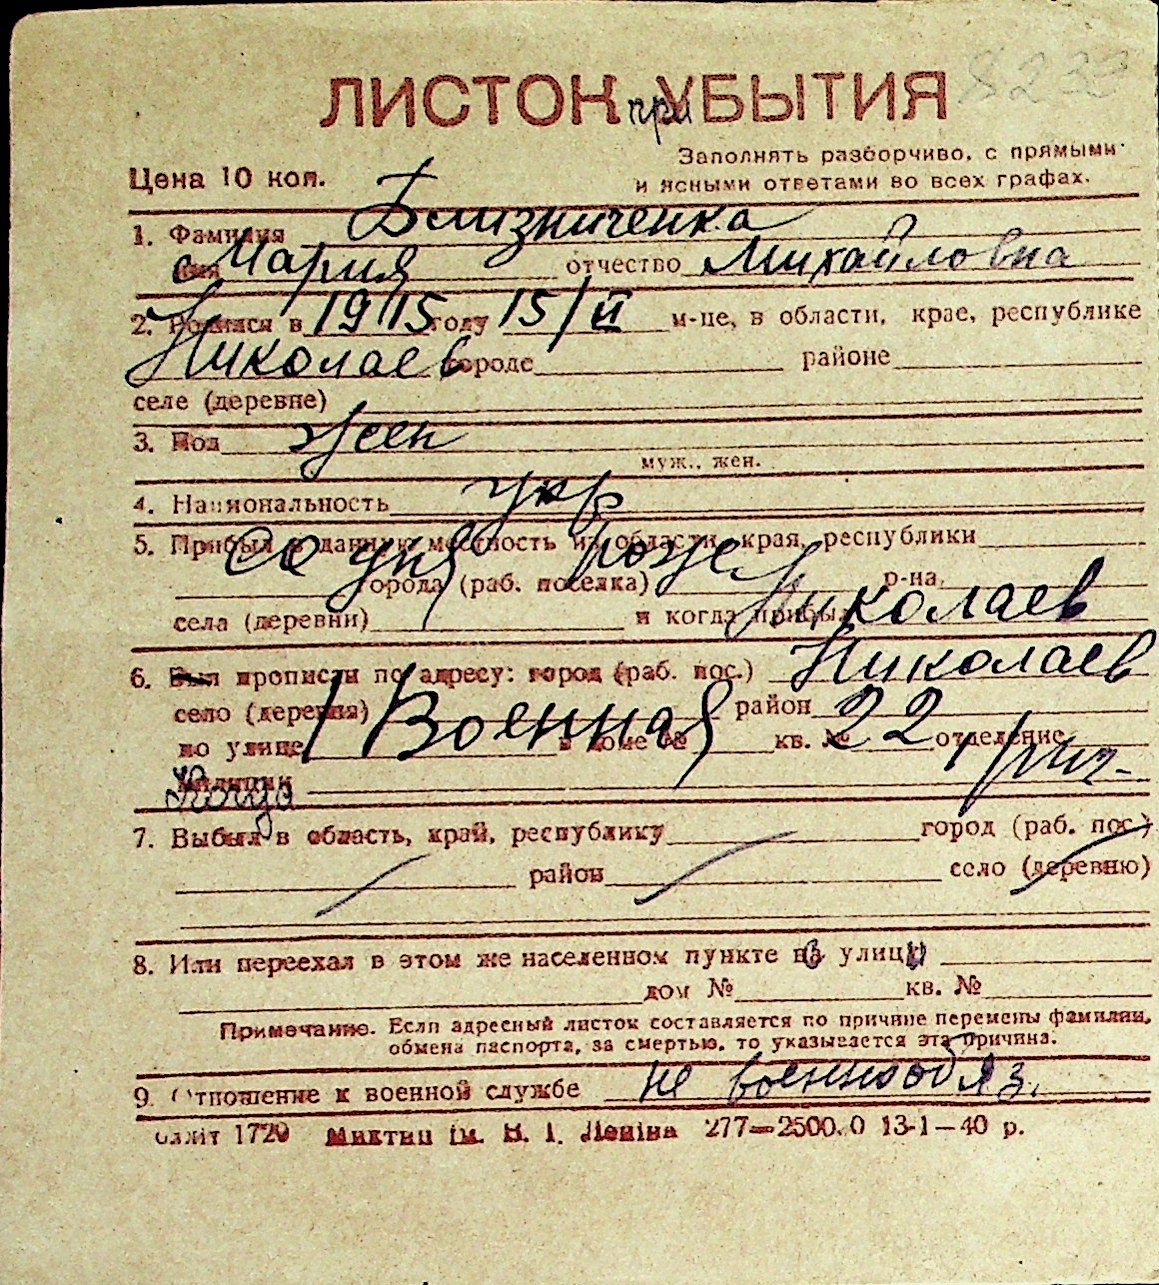 8233
ЛИСТОК при УБЫТИЯ
Заполнять разборчиво, с прямыми
Цена 10 коп. и ясными ответами во всех графах.
1. Фамилия Близниченка
Имя Мария отчество Михайловна
2. Родился в 1915 году 15/II м-це, в области, крае, республике
Николаев городе районе
селе (деревне)
3. Пол жен
муж., жен.
4. Национальность укр
5. Прибыл в данную местность из области, края, республики
со дня рожд
города (раб. поселка) р-на
села (деревни) и когда прибыл Николаев
6. Был прописан по адресу: город (раб. пос.) Николаев
село (деревня) район
по улице 1 Военная в доме № кв. № 22 отделение
милиции
7. Выбыл в область, край, республику город (раб. пос.)
район село (деревню)
8. Или переехал в этом же населенном пункте на улицу
дом № кв. №
Примечание. Если адресный листок составляется по причине перемены фамилии,
обмена паспорта, за смертью, то указывается эта причина.
9. Отношение к военной службе не военнообяз.
1720 Миктип ім. В. І. Леніна 277—2500.0 13-1—40 р.